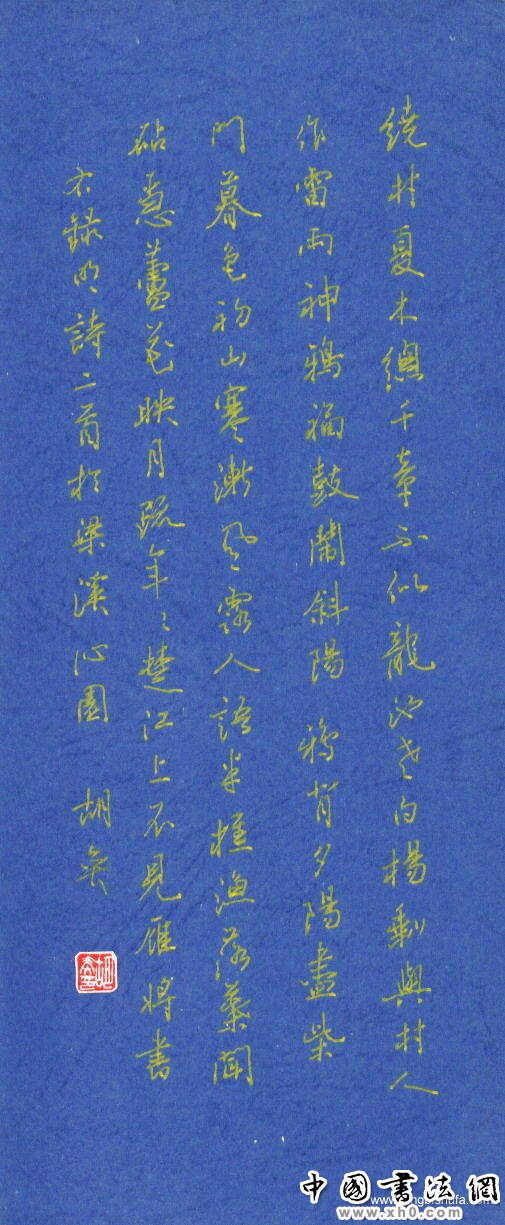 繞村夏木總千章不似龍池老白楊剩與村人
作雷雨神鴉福鼓鬧斜陽 鴉背夕陽盡柴
門暮色初山寒漸風露人語半樵漁落葉聞
砧急蘆花映月疏年〻楚江上不見雁將書
右錄明詩二首於梁溪沁園 胡
中國書法網
www.xh0.com